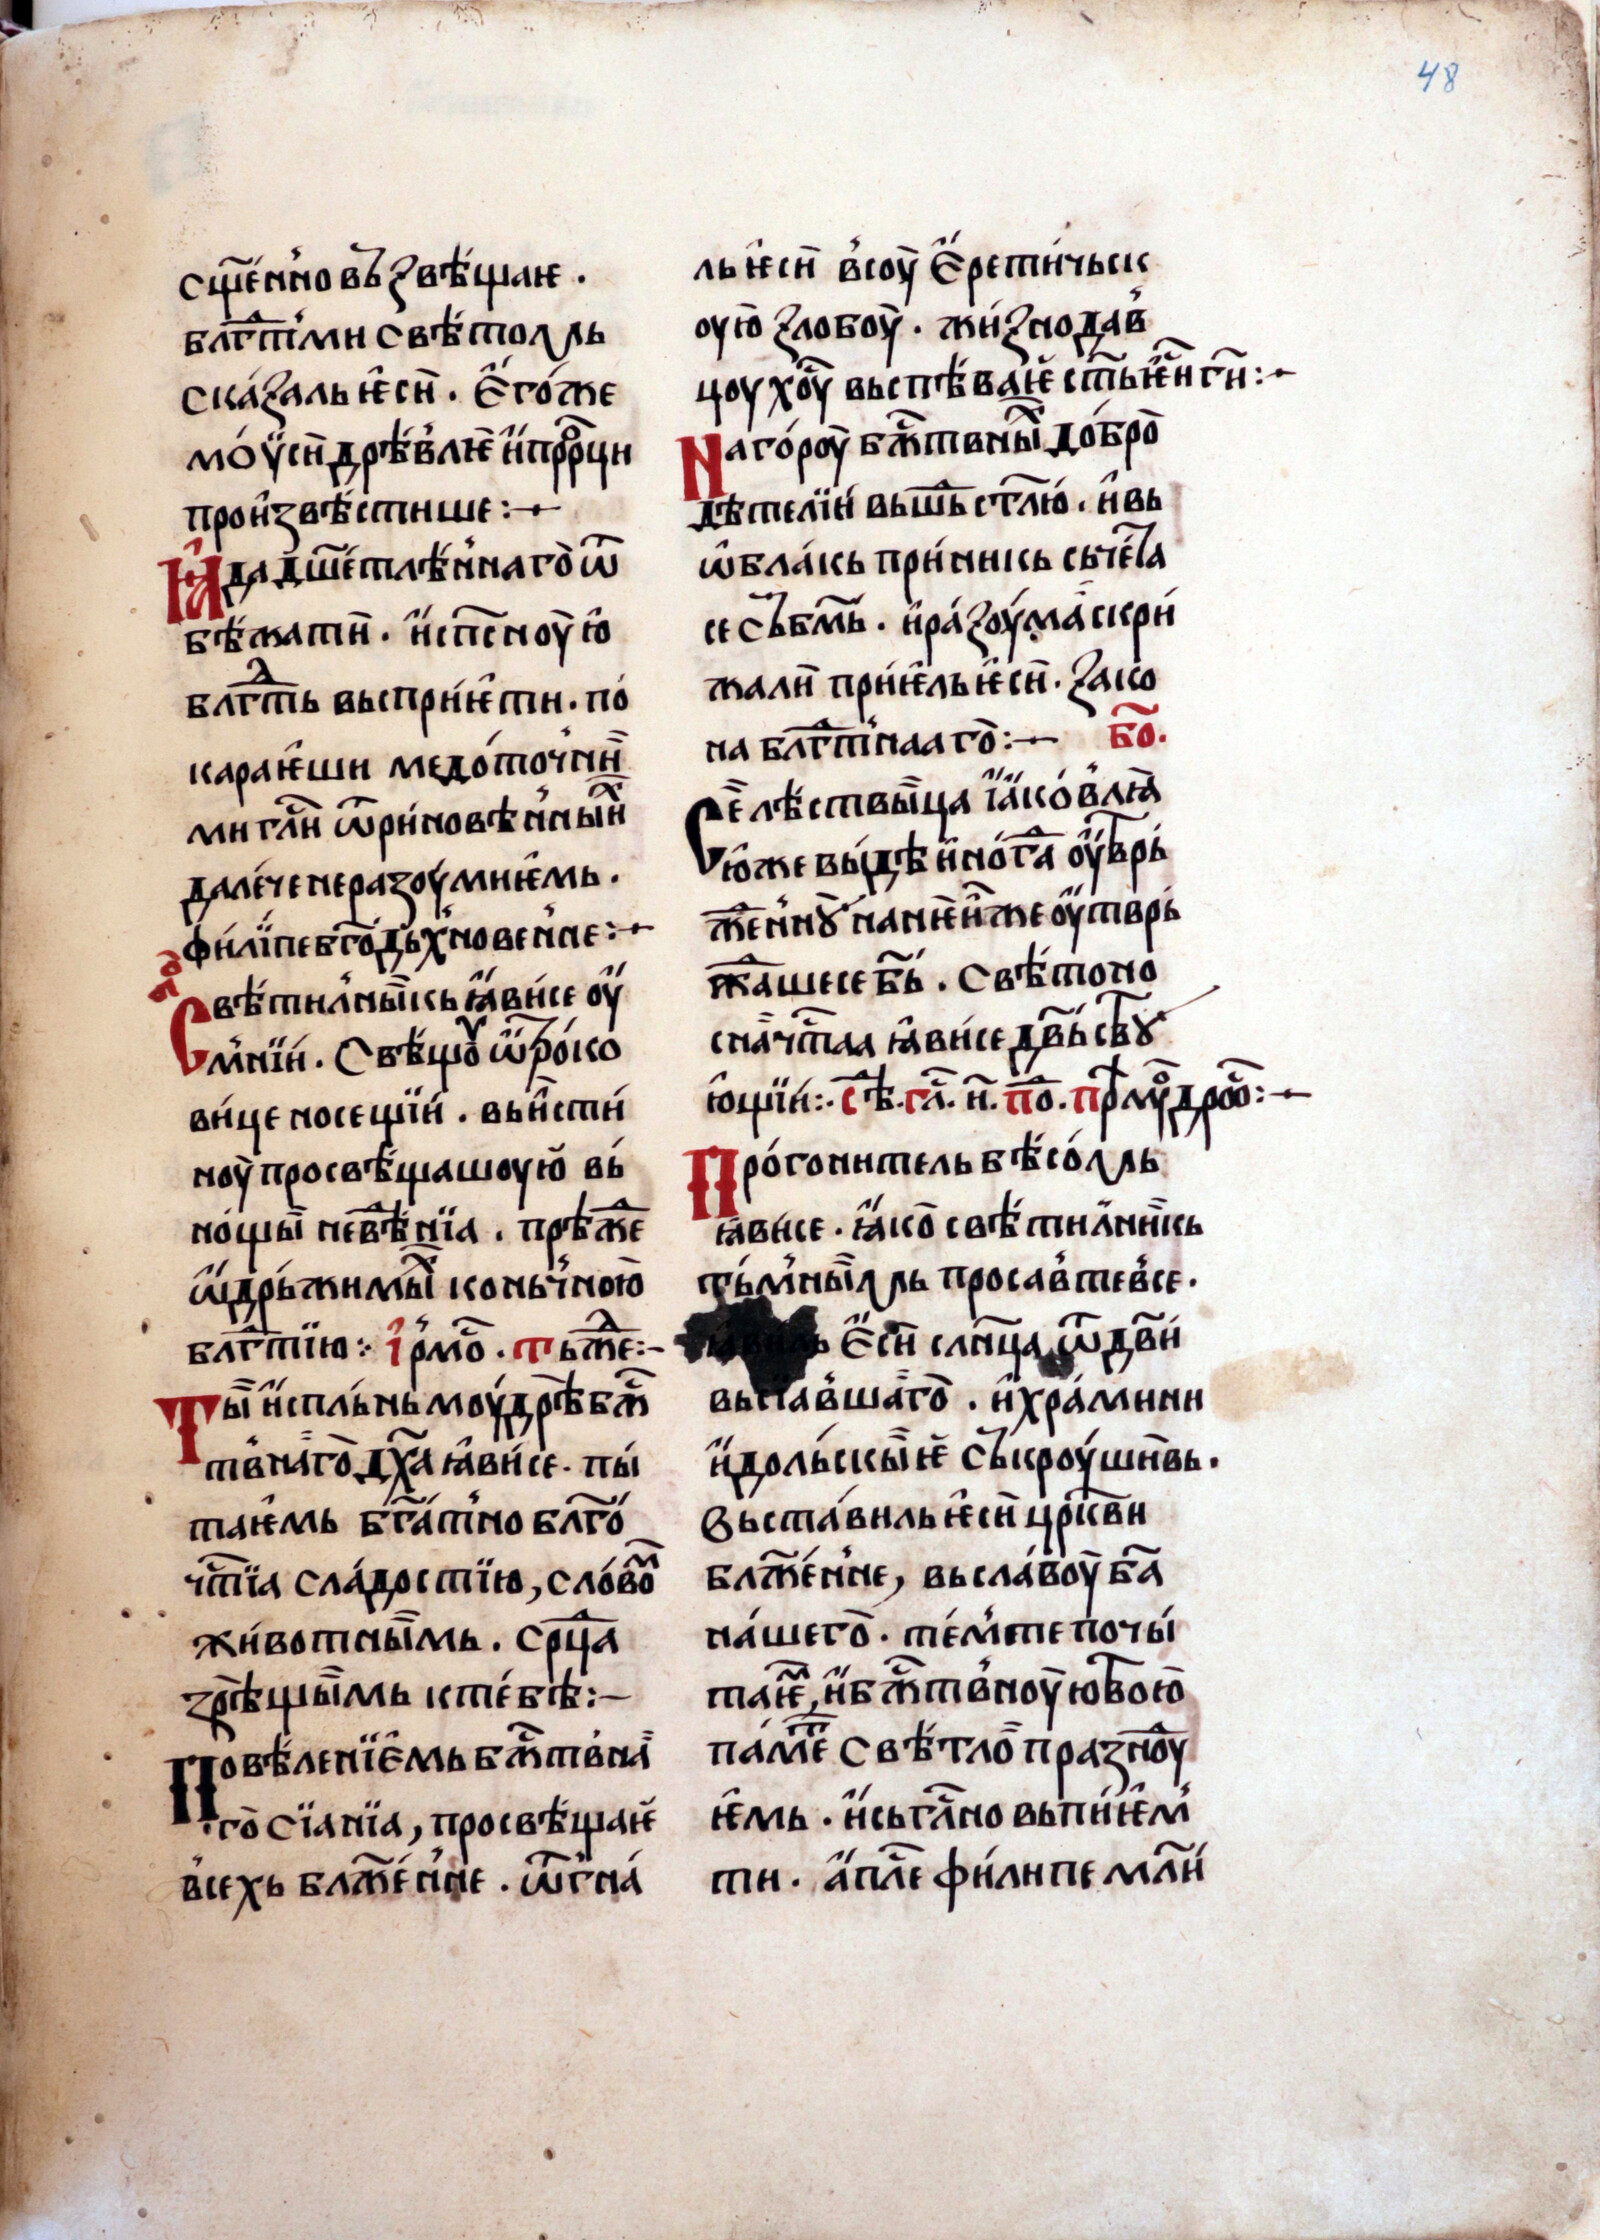 48
сщ҃е́н'но въ звѣ́щаѥ .
блг҃тїми свѣ́толль
ска́заль ѥ̂си̏ . є҆го́же
мо́ѵ̈си̏ дрѣ́в'лѥ и҆ прⷪ҇рци
прои́звѣ́стише :~
И҆да дш҃етлѣ́н'наго̀ ѿ
бѣ́жати̏ . и҆ сп҃сноу̀ю̂
блгⷣть вьспри́ѥ̂ти . по́
караѥ̂ши медо́точ'ны̏
ми гл҃и ѿри́новѣ́н'ныиⷯ
дале́че неразоу́мниѥ̂мь .
фи́лїпе бг҃одь́х'новен'не :~
бⷪ҇
Свѣ́тил'ны̏кь ꙗ҆ви́се оу҆
м'нїи́ . Свѣ́щоу ѿро́ко
ви́це носещїи́ . вьи̏сти́
ноу̀ просвѣ́щашоую̀ вь́
но́щы̏ невѣⷣ́нїа . прѣ́жⷣе
ѡ҆дрь́жимы̏ⷯ коньч'ною̀
блгⷣтїю : і҆рмоⷭ . тьⷤ́де :~
Ты̏ и҆спль́нь моу́дрѣ бж҃
тв'наго̀ дх҃а ꙗ҆ви́се . пы́
таѥ̂мь бг҃а́т'но блг҃о́
чтⷭ҇їа сла́достїю, сло́воⷨ
жи́вотны̏мь . срⷣца
зре́щы̏мь к те́бѣ :~
Повѣ́ленїє̂мь бж҃тв'на̏
го̀ сїанїа, просвѣ́щаѥ̏
в'сехь блж҃е́н'не . ѿгна́
ль ѥ̂си̏ в'соу̀ є҆рети́чьск
оую̀ злобоу̀ . жи́знодав'
цоу хⷭ҇оу вьспѣ́ваѥ̏ стьⷯ ѥ̂ги̏ги̏ :~
На го́роу̀ бж҃твны̏ⷯ до́бро̀
дѣтелїи́ вьшьⷣ стл҃ю́ . и̂ вь
ѡ҆бла́кь при́никь сьче́та
се съ бм҃ь . и̂ ра́зоу́ма̏ скри́
жали̏ при́ѥ̂ль ѥ̂си̏ . зако
на блгⷣт'наа го̀ :~ бо҃.
Се̏ лѣ́ствы̏ца і҆ꙗ҆ко́в'лꙗ̏
ю̂же вы́дѣ и̂но́гⷣа оу҆твръ́
жⷣен'нꙋ̀ на нѥ̏и̏же оу҆тврь́
жⷣашесе бь҃ . Свѣ́тоно
сна̏ чтⷭ҇аа ꙗ҆ви́се дв҃ь свⷮꙋ
ю̂щїи́ :. сѣⷣ. гл҃. и҃. поⷣ. прⷨ҇моудроⷭ :~
Про́гонитель бѣ́со́лль
ꙗ҆ви́се . ꙗ҆ко̀ свѣ́тил'ни̏кь
ть́м'ны̏лль просав'тев'се .
є҆си̏ слн҃ца ѿ дв҃и́
вьсїав'ша̏го̀ . и̂ хра́мини
и҆доль́скы̏ѥ̏ съкроу́ши̏вь .
Вьста́виль ѥ̂си̏ црⷦ҇ви
блж҃е́н'не, вь сла́воу̀ б҃а
на́шего̀ . те́м'те почы́
таѥⷨ, и҆ б҃жтв'ноу̀ю твою̀
па́меⷮ Свѣ́тло̏ празⷣноу
ѥ̂мь . и҆ сьгла́сно вьпи́ѥ̂м'
ти . а҆пⷭ҇ле фи́липе мл҃и́